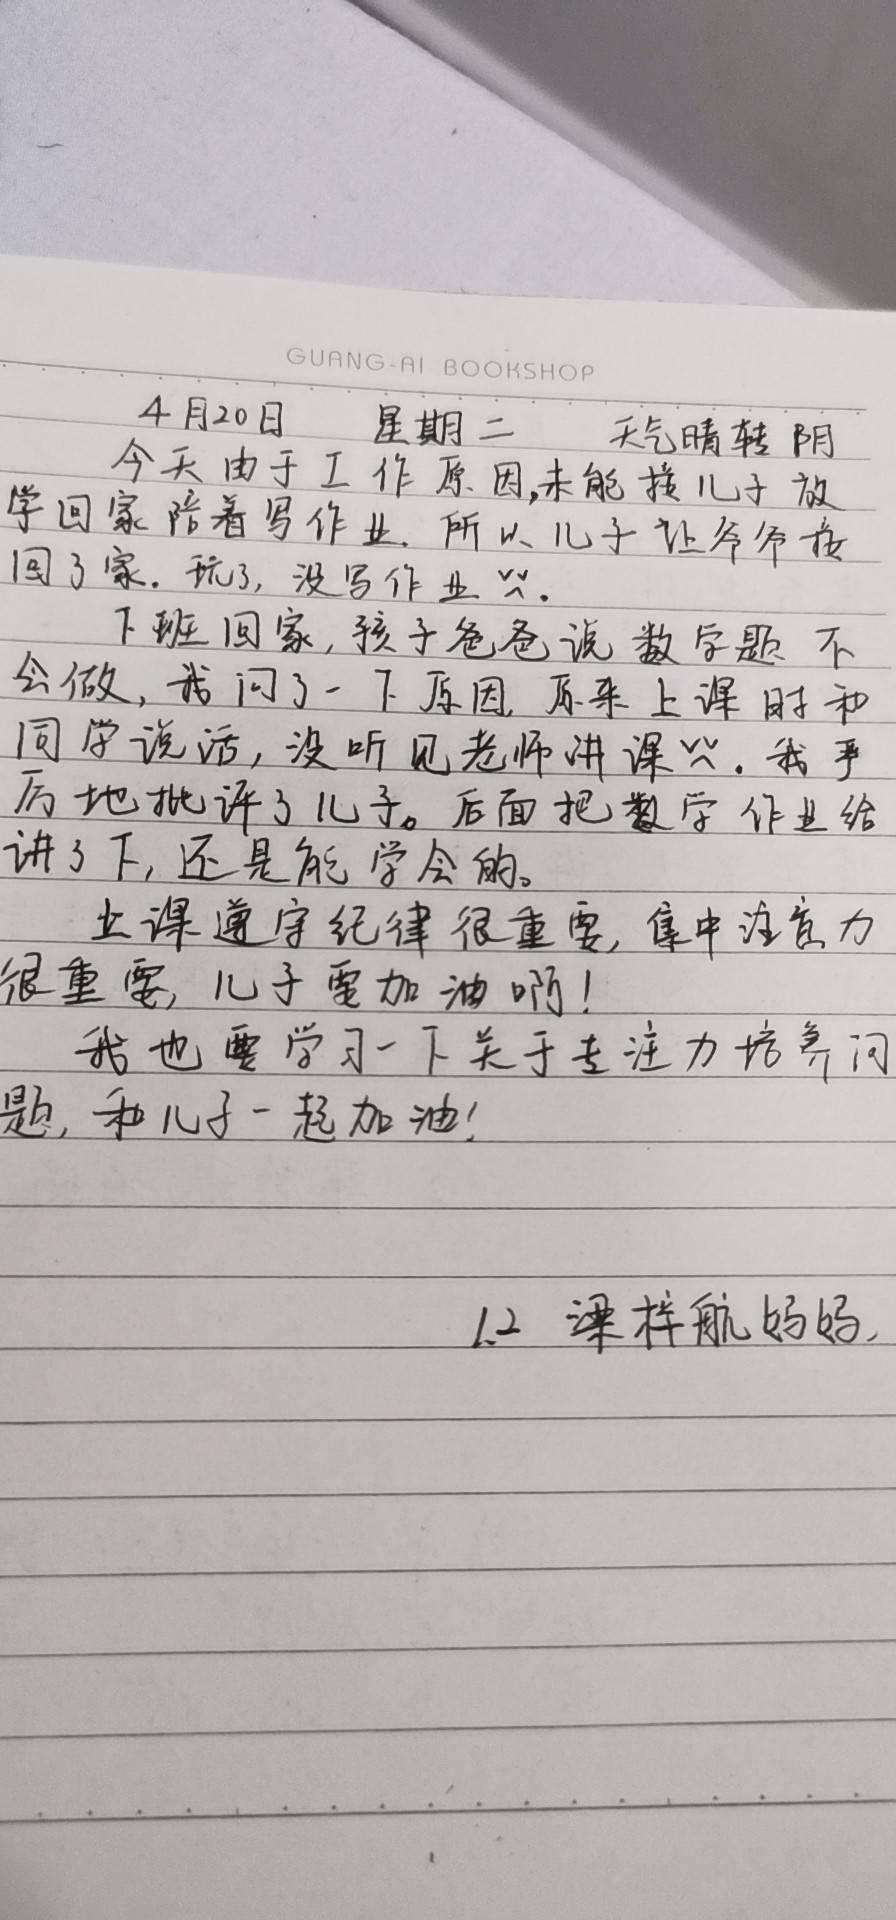 GUANG-AI BOOKSHOP
4月20日 星期二 天气晴转阴
今天由于工作原因,未能接儿子放
学回家陪着写作业.所以儿子让爷爷接
回了家.玩了,没写作业
下班回家,孩子爸爸说数学题不
会做,我问了一下原因,原来上课时和
同学说话,没听见老师讲课.我严
厉地批评了儿子。后面把数学作业给
讲了下,还是能学会的。
上课遵守纪律很重要,集中注意力
很重要,儿子要加油啊!
我也要学习一下关于专注力培养问
题,和儿子一起加油!
1.2 梁梓航妈妈,